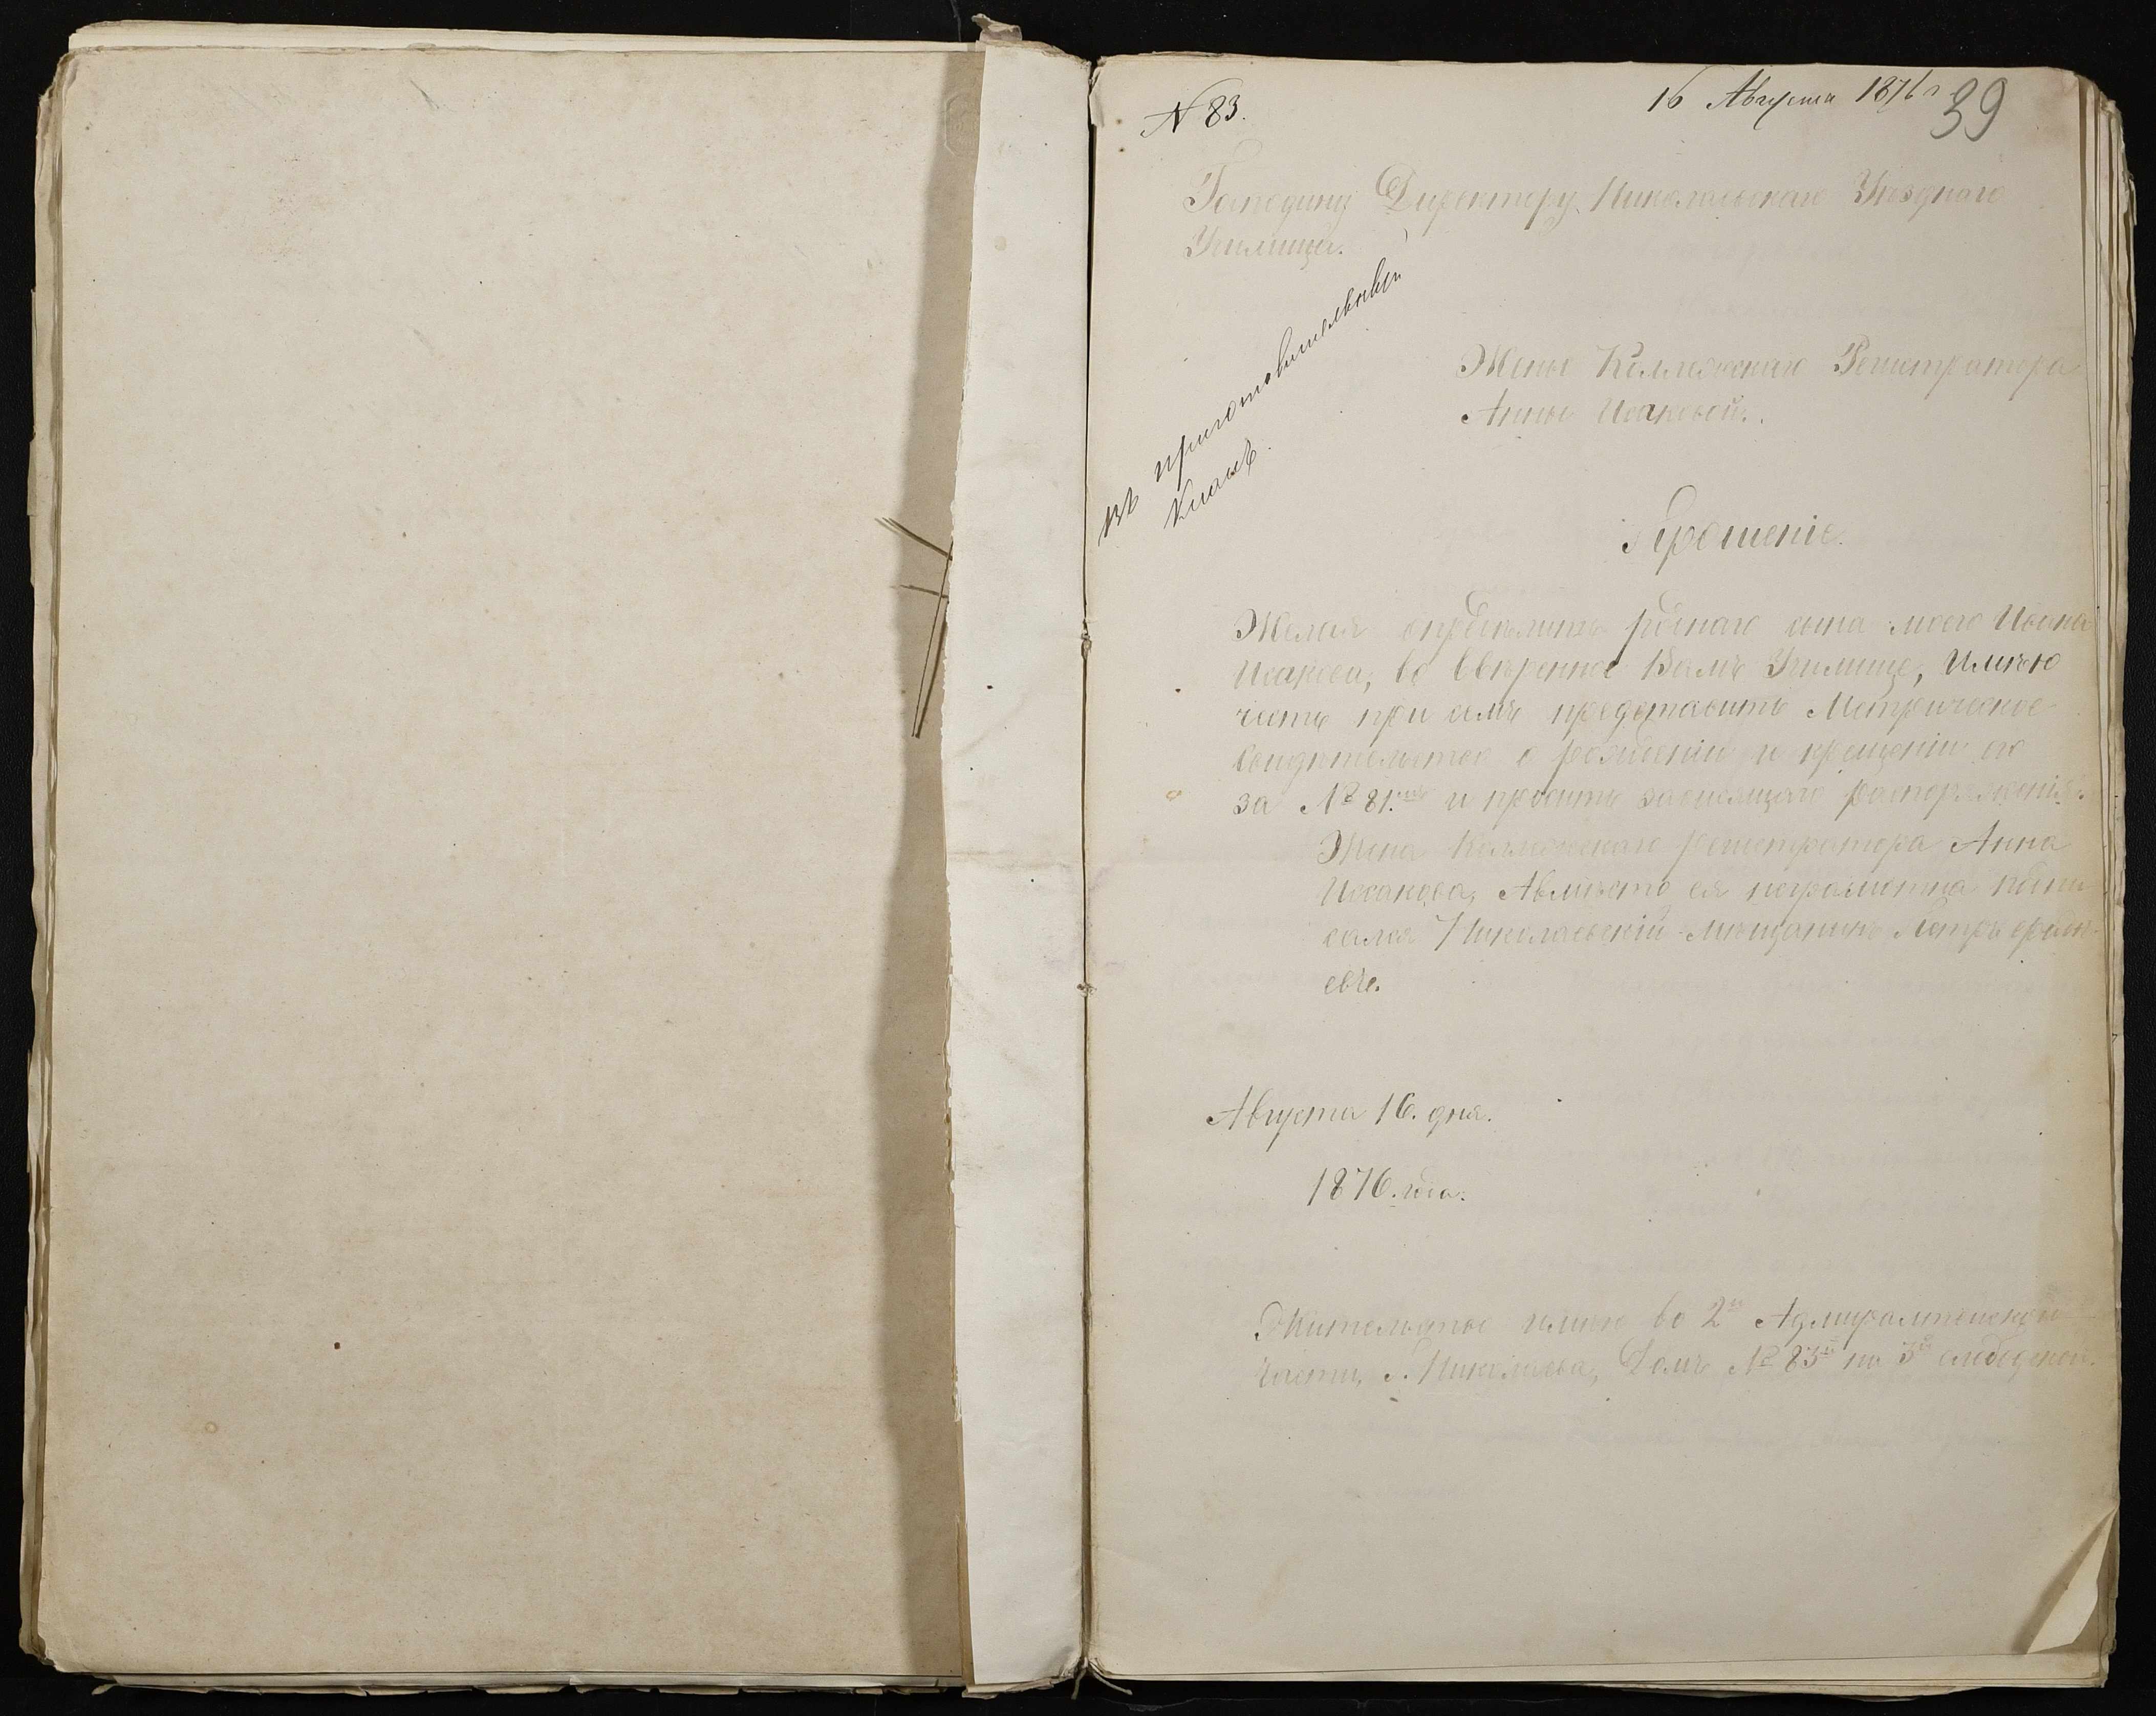 N 83.
16 Августа 1876 г
39
Господину Директору Николаевскаго Уѣзднаго
Училища.
въ приготовительный
Классъ.
Жены Коллежскаго Регистратора
Анны Исаковой.
Прошеніе.
Желая опредѣлить роднаго сына моего Ивана
Исакова, во ввѣренное Вамъ Училище, Имѣю
честь при семъ представить Метрическое
свидѣтельство о рожденіи и крещеніи его
за № 81. и просить зависящаго распоряженія.
Жена Коллежскаго регистратора Анна
Исакова, Авмѣсто ея неграмотна подпи
сался Николаевскій мѣщанинъ Петръ
евъ.
Августа 16. дня.
1876. года.
Жительство имѣю во 2й Адмиралтейской
части, г. Николаева, Домъ № 83й по 3й слободской.